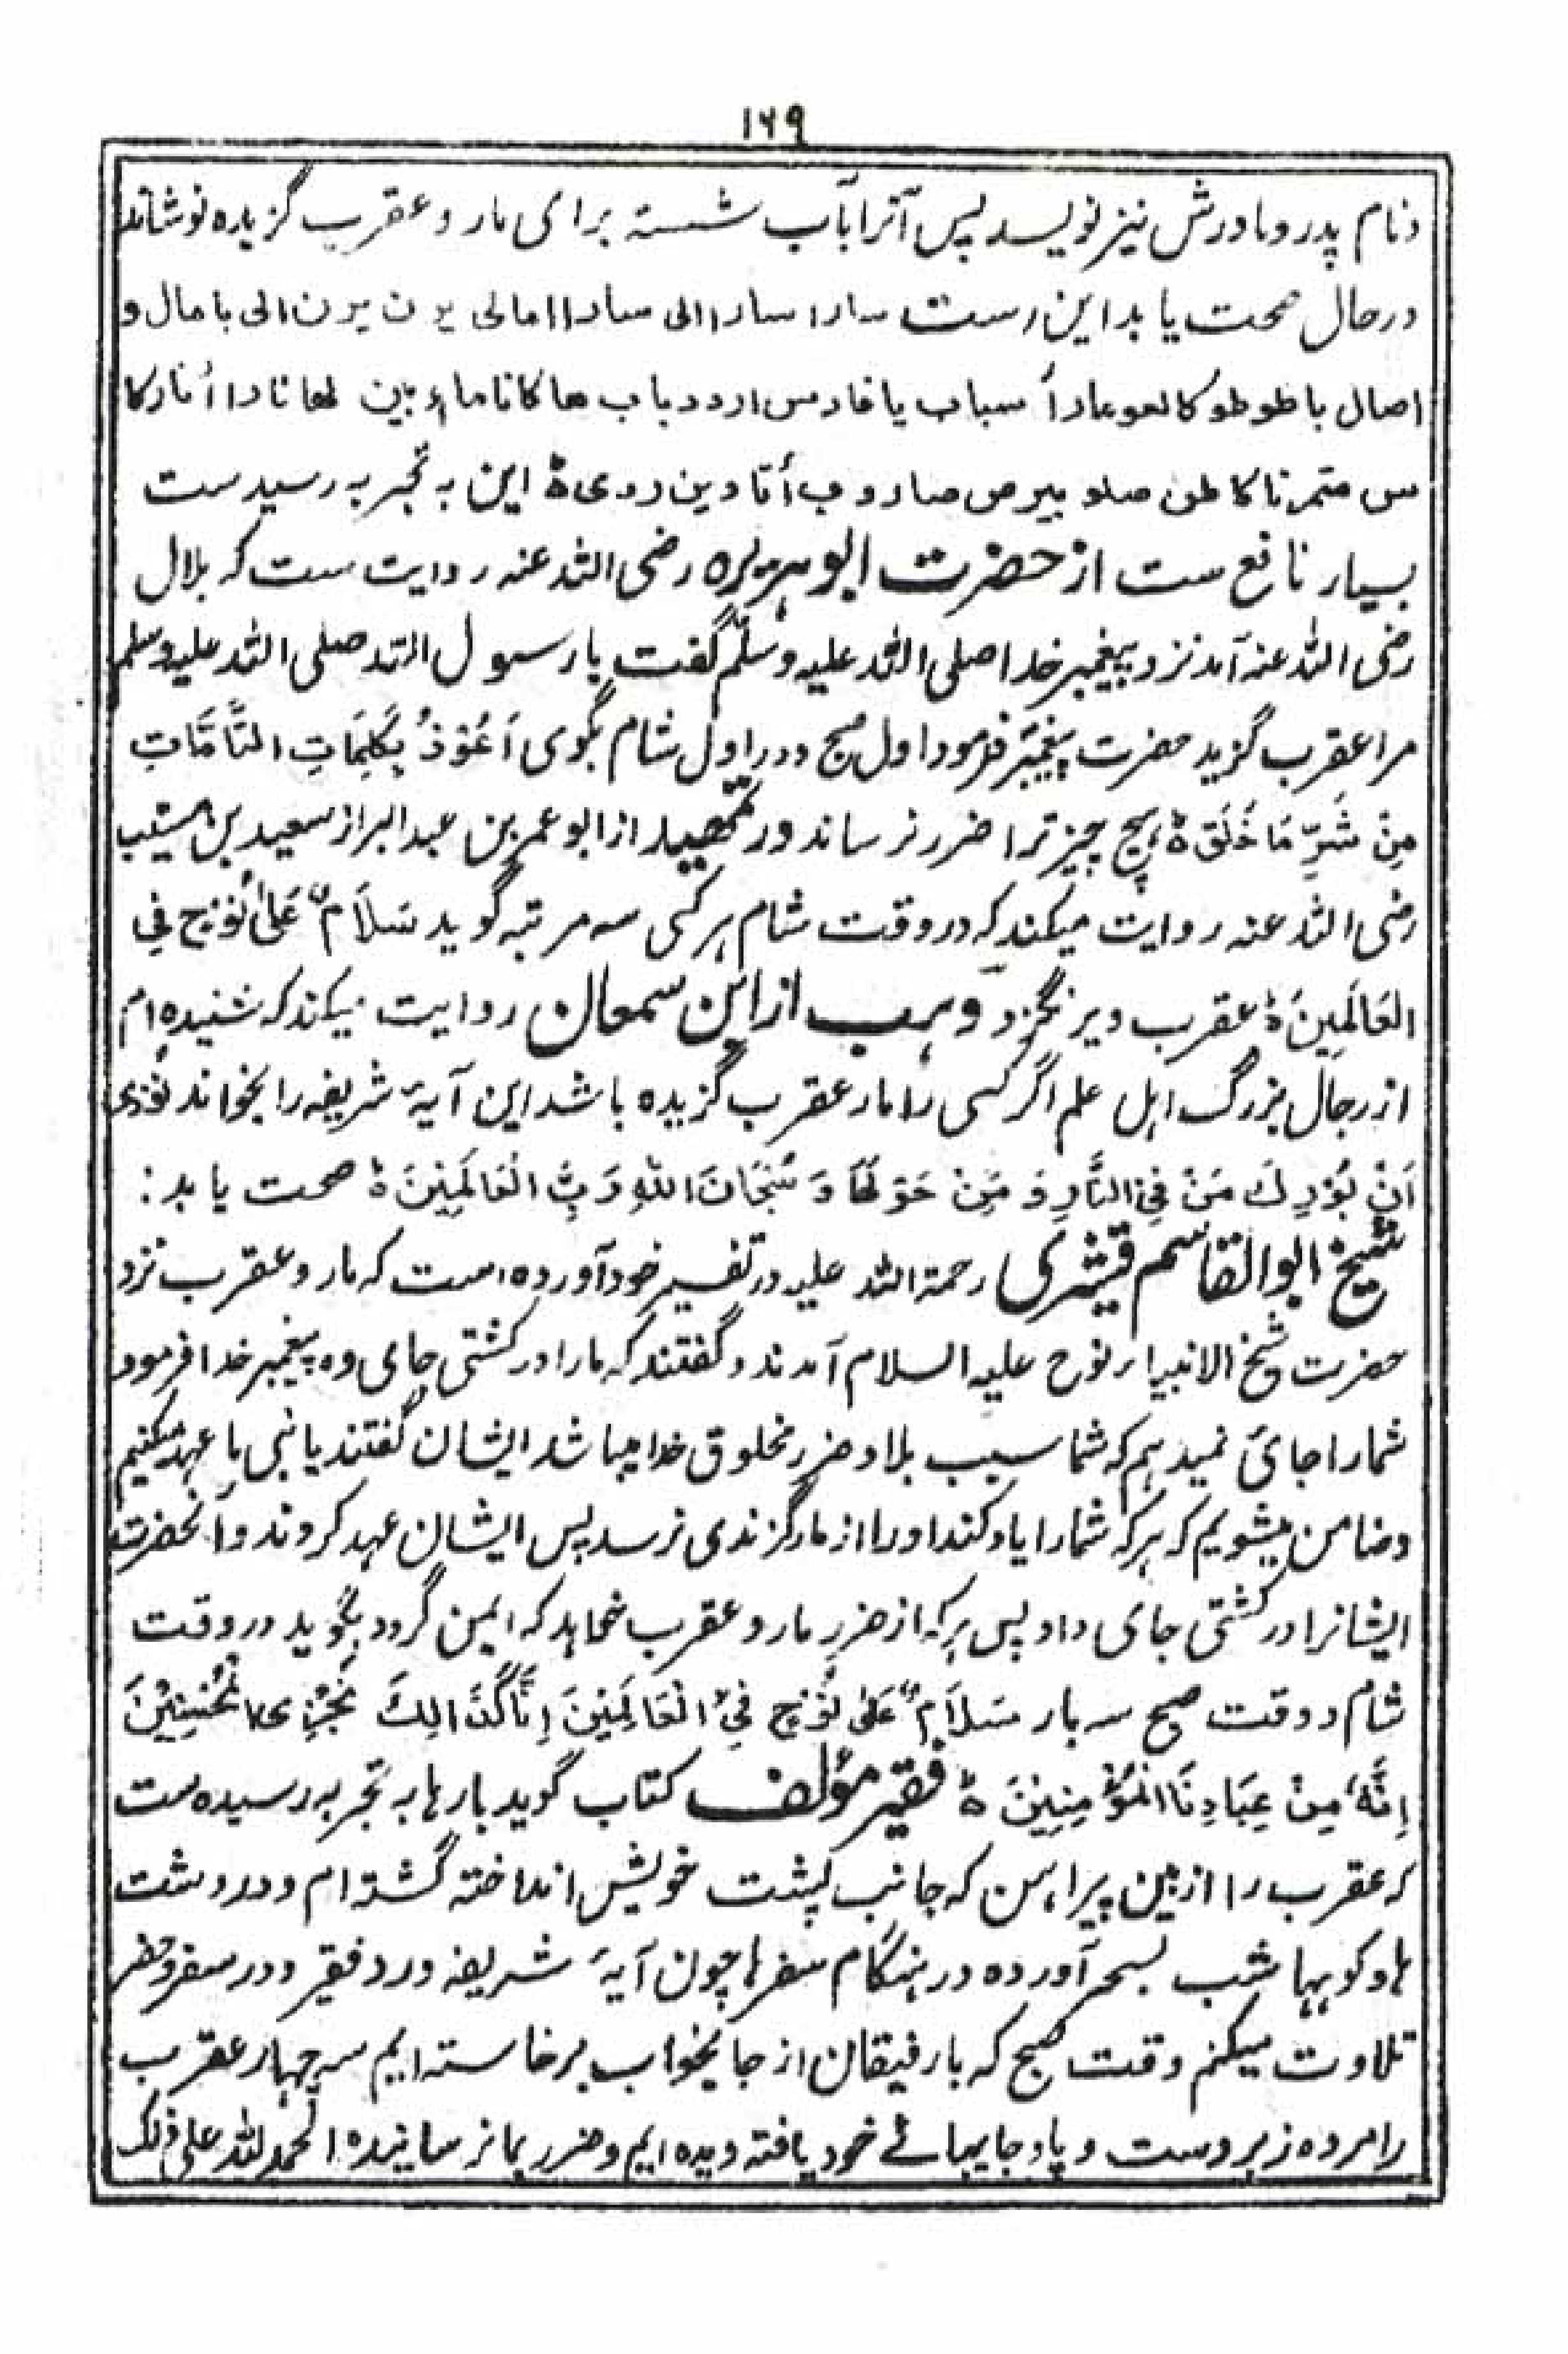 ۱۶۹
ونام پدر و مادرش نیز نویسد پس آنرا بآب شسته برای مار و عقرب گزیده نوشاند
درحال صحت یابد این ست سارا سارا الی سارا امالی یرن یرن الی بامال و
اصال باطوطو کالعو عاداً سباب یا فادس اردد باب ها کانا ماء بین لها نادا أنارکا
س متمرنا کاطن صلو بیرص صاروب أنا وین ددی ہ این بہ تجربہ رسیدست
بسیار نافع ست از حضرت ابوہریرہ رضی اللہ عنہ روایت ست کہ بلال
رضی اللہ عنہ آمد نزد پیغمبر خدا صلی اللہ علیہ وسلّم گفت یا رسول اللہ صلی اللہ علیہ وسلم
مرا عقرب گزید حضرت پیغمبر فرمود اول صبح و در اول شام بگوی اَعُوْذُ بِکَلِمَاتِ التَّامَّاتِ
مِنْ شَرِّ مَا خَلَقَ ہ ہیچ چیز ترا ضرر نرساند در تمھید از ابو عمر بن عبد البر از سعید بن مسیّب
رضی اللہ عنہ روایت میکند کہ در وقت شام ہر کسی سہ مرتبہ گوید سَلاَمٌ عَلیٰ نُوْحٍ فِی
العَالَمِینَ ہ عقرب ویر نگزد وہب از ابن سمعان روایت میکند کہ شنیدہ ام
از رجال بزرگ اہل علم اگر کسی را مار عقرب گزیدہ باشد این آیۂ شریفہ را بخواند نُوْدِیَ
اَنْ بُوْرِكَ مَنْ فِی النَّارِ وَ مَنْ حَوْلَھَا وَ سُبْحَانَ اللہِ رَبِّ الْعَالَمِیْنَ ہ صحت یابد :
شیخ ابوالقاسم قشیری رحمۃ اللہ علیہ در تفسیر خود آوردہ است کہ مار و عقرب نزد
حضرت شیخ الانبیاء نوح علیہ السلام آمدند و گفتند کہ مارا در کشتی جای دہ پیغمبر خدا فرمود
شمارا جائ نمیدہم کہ شما سبب بلا و ضرر مخلوق خدا میباشد ایشان گفتند یا نبی ما عہد میکنیم
وضامن میشویم کہ ہرکہ شمارا یاد کند اورا از مار گزندی نرسد پس ایشان عہد کردند وآنحضرت
ایشانرا در کشتی جای داد پس ہرکہ از ضرر مار و عقرب خماہد کہ ایمن گردد بگوید در وقت
شام و وقت صبح سہ بار سَلاَمٌ عَلیٰ نُوْحٍ فِیْ الْعَالَمِیْنَ اِنَّا کَذَالِكَ نَجْزِی الْمُحْسِنِیْنَ
اِنَّہٗ مِنْ عِبَادِنَا الْمُؤْمِنِیْنَ ہ فقیر مؤلف کتاب گوید بارہا بہ تجربہ رسیدہ ست
کہ عقرب را از بین پیراہن کہ جانب پشت خویش انداختہ گشتہ ام و در دشت
ہا و کوہہا شب بسحر آوردہ در ہنگام سفرہا چون آیۂ شریفہ ورد فقیر و در سفر وحضر
تلاوت میکنم وقت صبح کہ با رفیقان از جایخواب برخاستہ ایم سہ چہار عقرب
را مردہ زیر دست و پا و جایہائے خود یافتہ ودیدہ ایم وضرر بما نرسانیدہ الحمد للہ علی ذلک